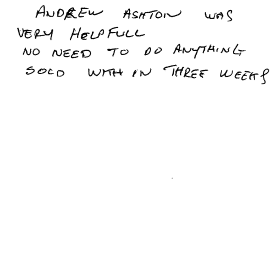 ANDREW ASHTON WAS
VERY HELPFULL
NO NEED TO DO ANYTHING
SOLD WITH IN THREE WEEKS